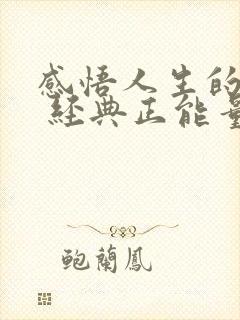 感悟人生的
經典正能量
鲍蘭鳳